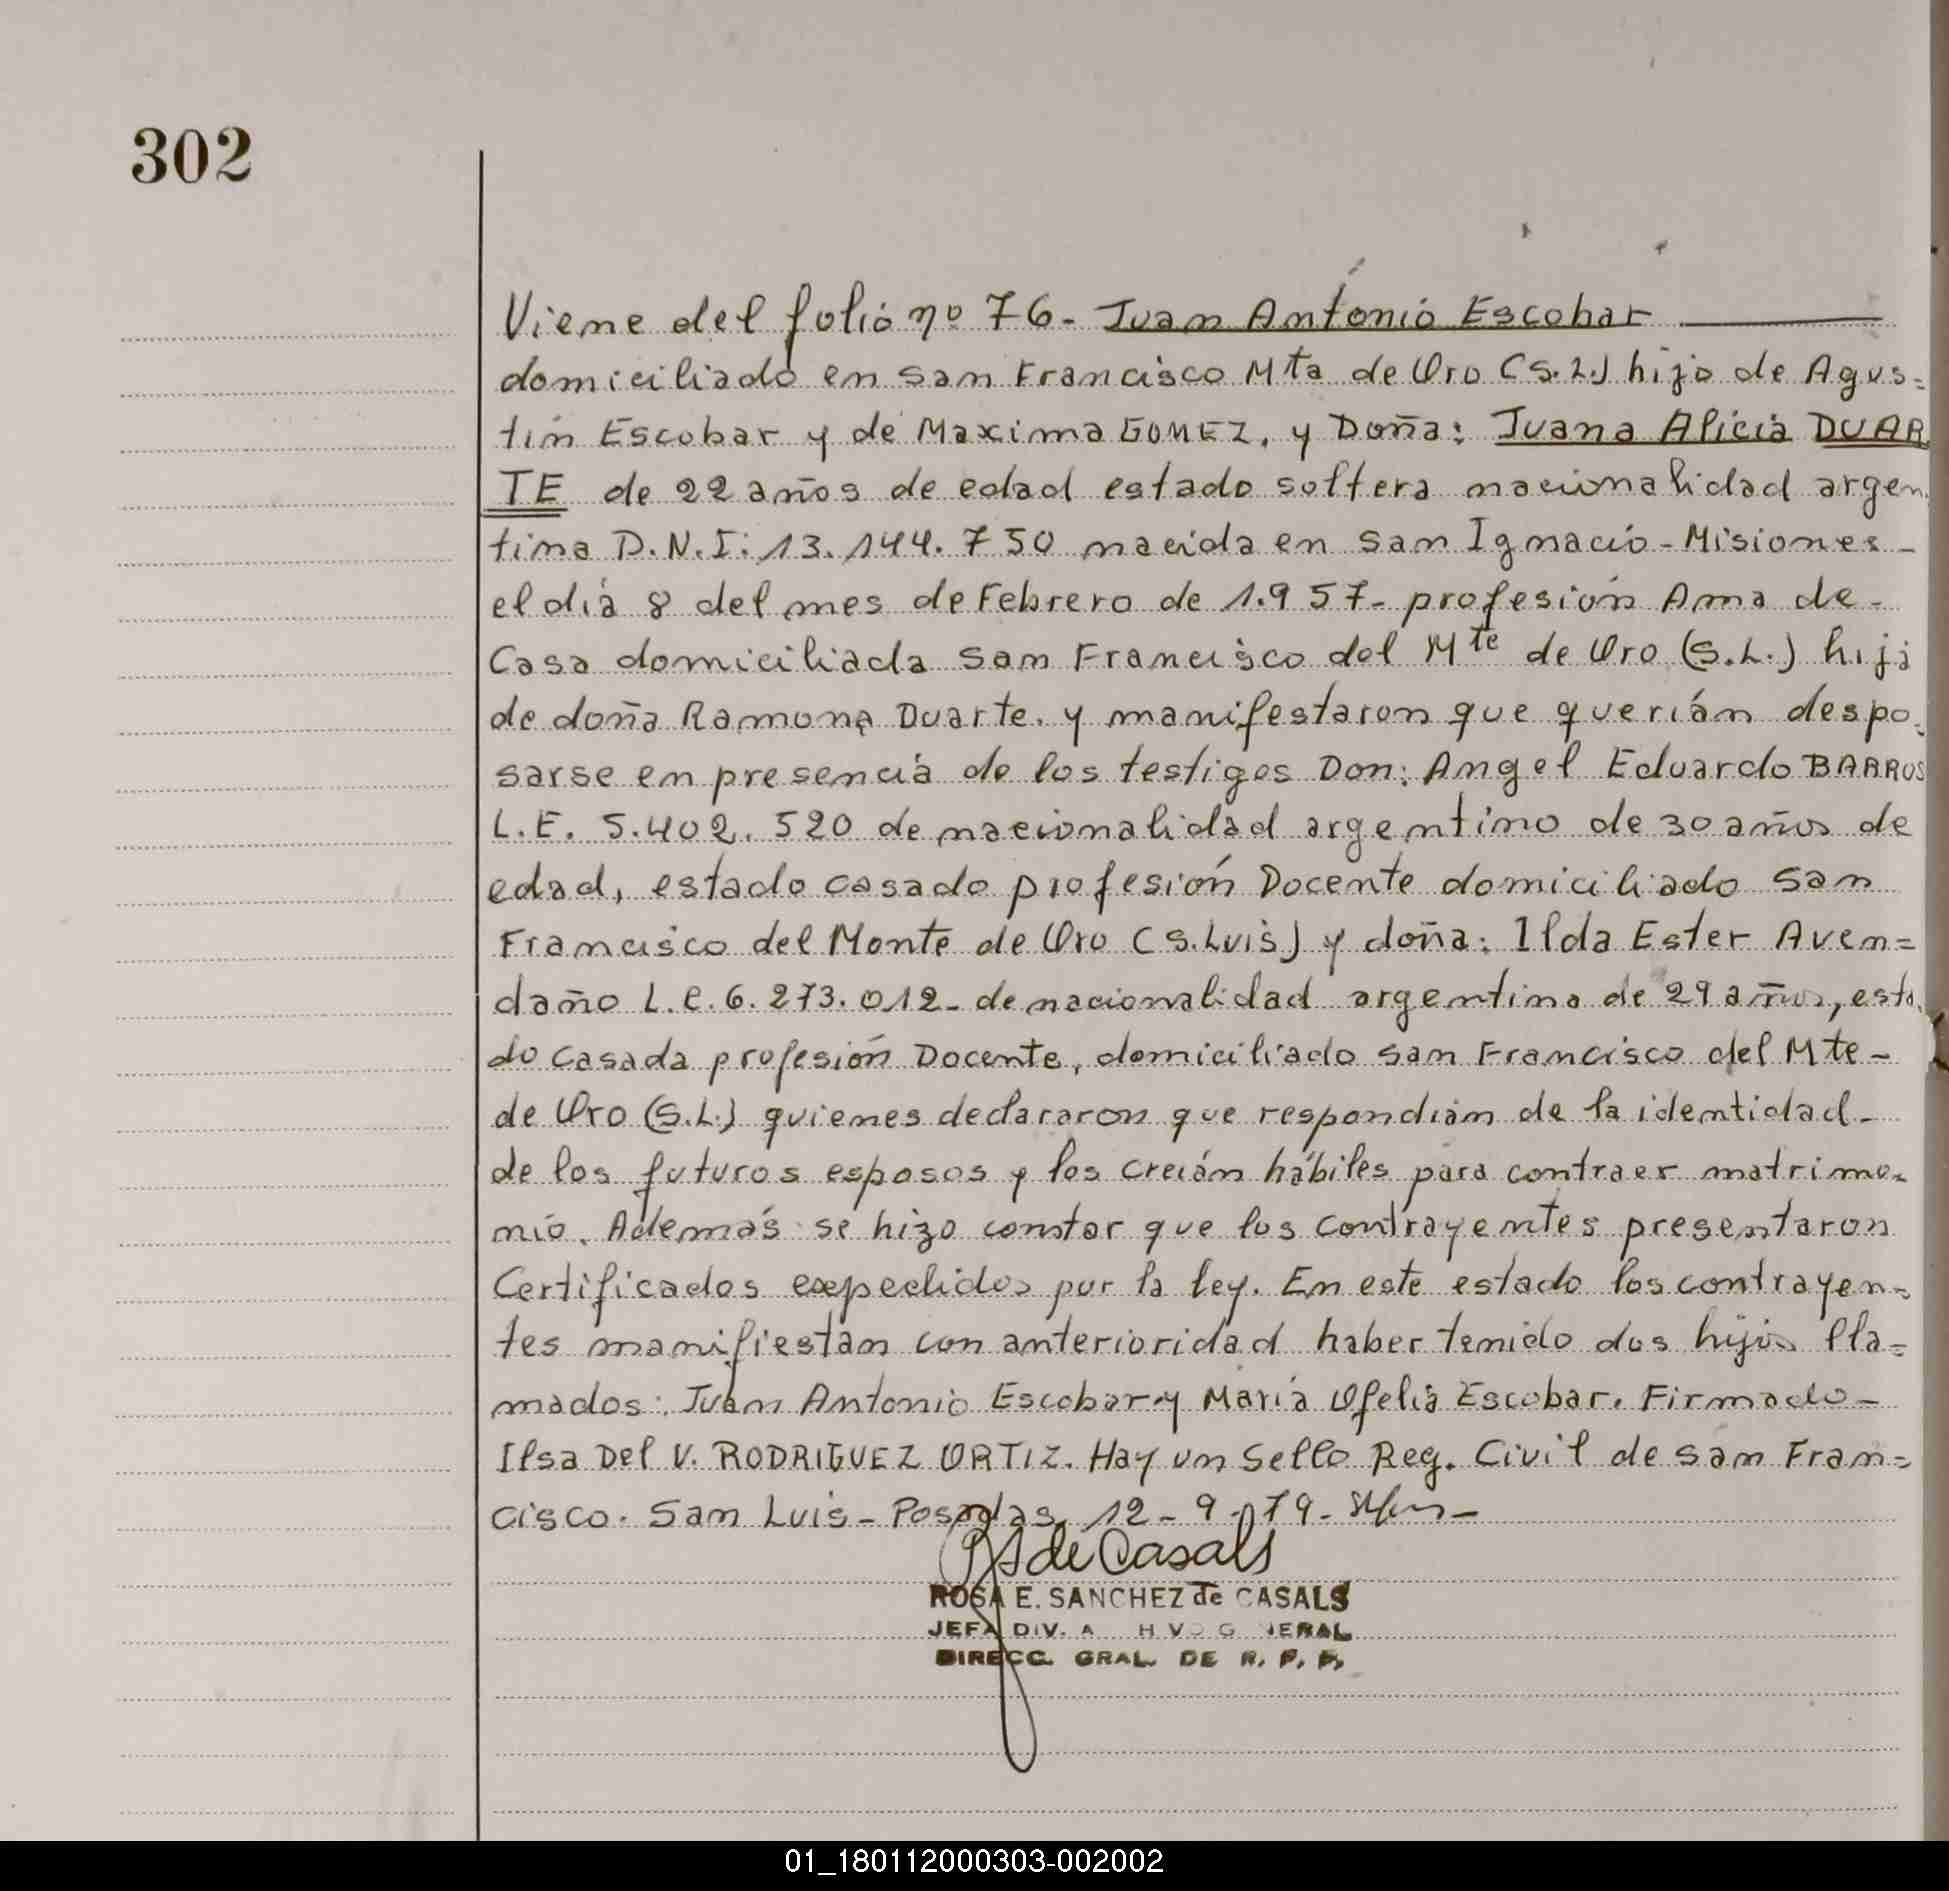 302
Viene del folio nº 76- Juan Antonio Escobar
domiciliado en San Francisco Mta de Oro (S.L.) hijo de Agus=
tín Escobar y de Maxima GOMEZ. y Doña: Juana Alicia DUAR
TE de 22 años de edad estado soltera nacionalidad argen
tina D.N.I: 13.144.750 nacida en San Ignacio-Misiones-
el día 8 del mes de Febrero de 1.957- profesión Ama de-
Casa domiciliada San Francisco del Mte de Oro (S.L.) hija
de doña Ramona Duarte. y manifestaron que querían despo=
sarse en presencia de los testigos Don: Angel Eduardo BARROS
L.E. 5.402.520 de nacionalidad argentino de 30 años de
edad, estado casado profesión Docente domiciliado San
Francisco del Monte de Oro (S.Luis) y doña: Ilda Ester Aven=
daño L.C.6.273.012- de nacionalidad argentina de 29 años, esta
do casada profesión Docente, domiciliado San Francisco del Mte-
de Oro (S.L.) quienes declararon que respondían de la identidad-
de los futuros esposos y los creían hábiles para contraer matrimo-
nio. Además se hizo constar que los contrayentes presentaron
Certificados expedidos por la ley. En este estado los contrayen-
tes manifiestan con anterioridad haber tenido dos hijos lla=
mados: Juan Antonio Escobar y María Ofelia Escobar. Firmado-
Ilsa Del V. RODRIGUEZ ORTIZ. Hay un Sello Reg. Civil de San Fran=
cisco. San Luis- Posadas, 12-9-79-
de Casals
ROSA E. SANCHEZ de CASALS
JEFA DIV. A H V O G NERAL
DIRECC. GRAL. DE R. P. P.
01_180112000303-002002